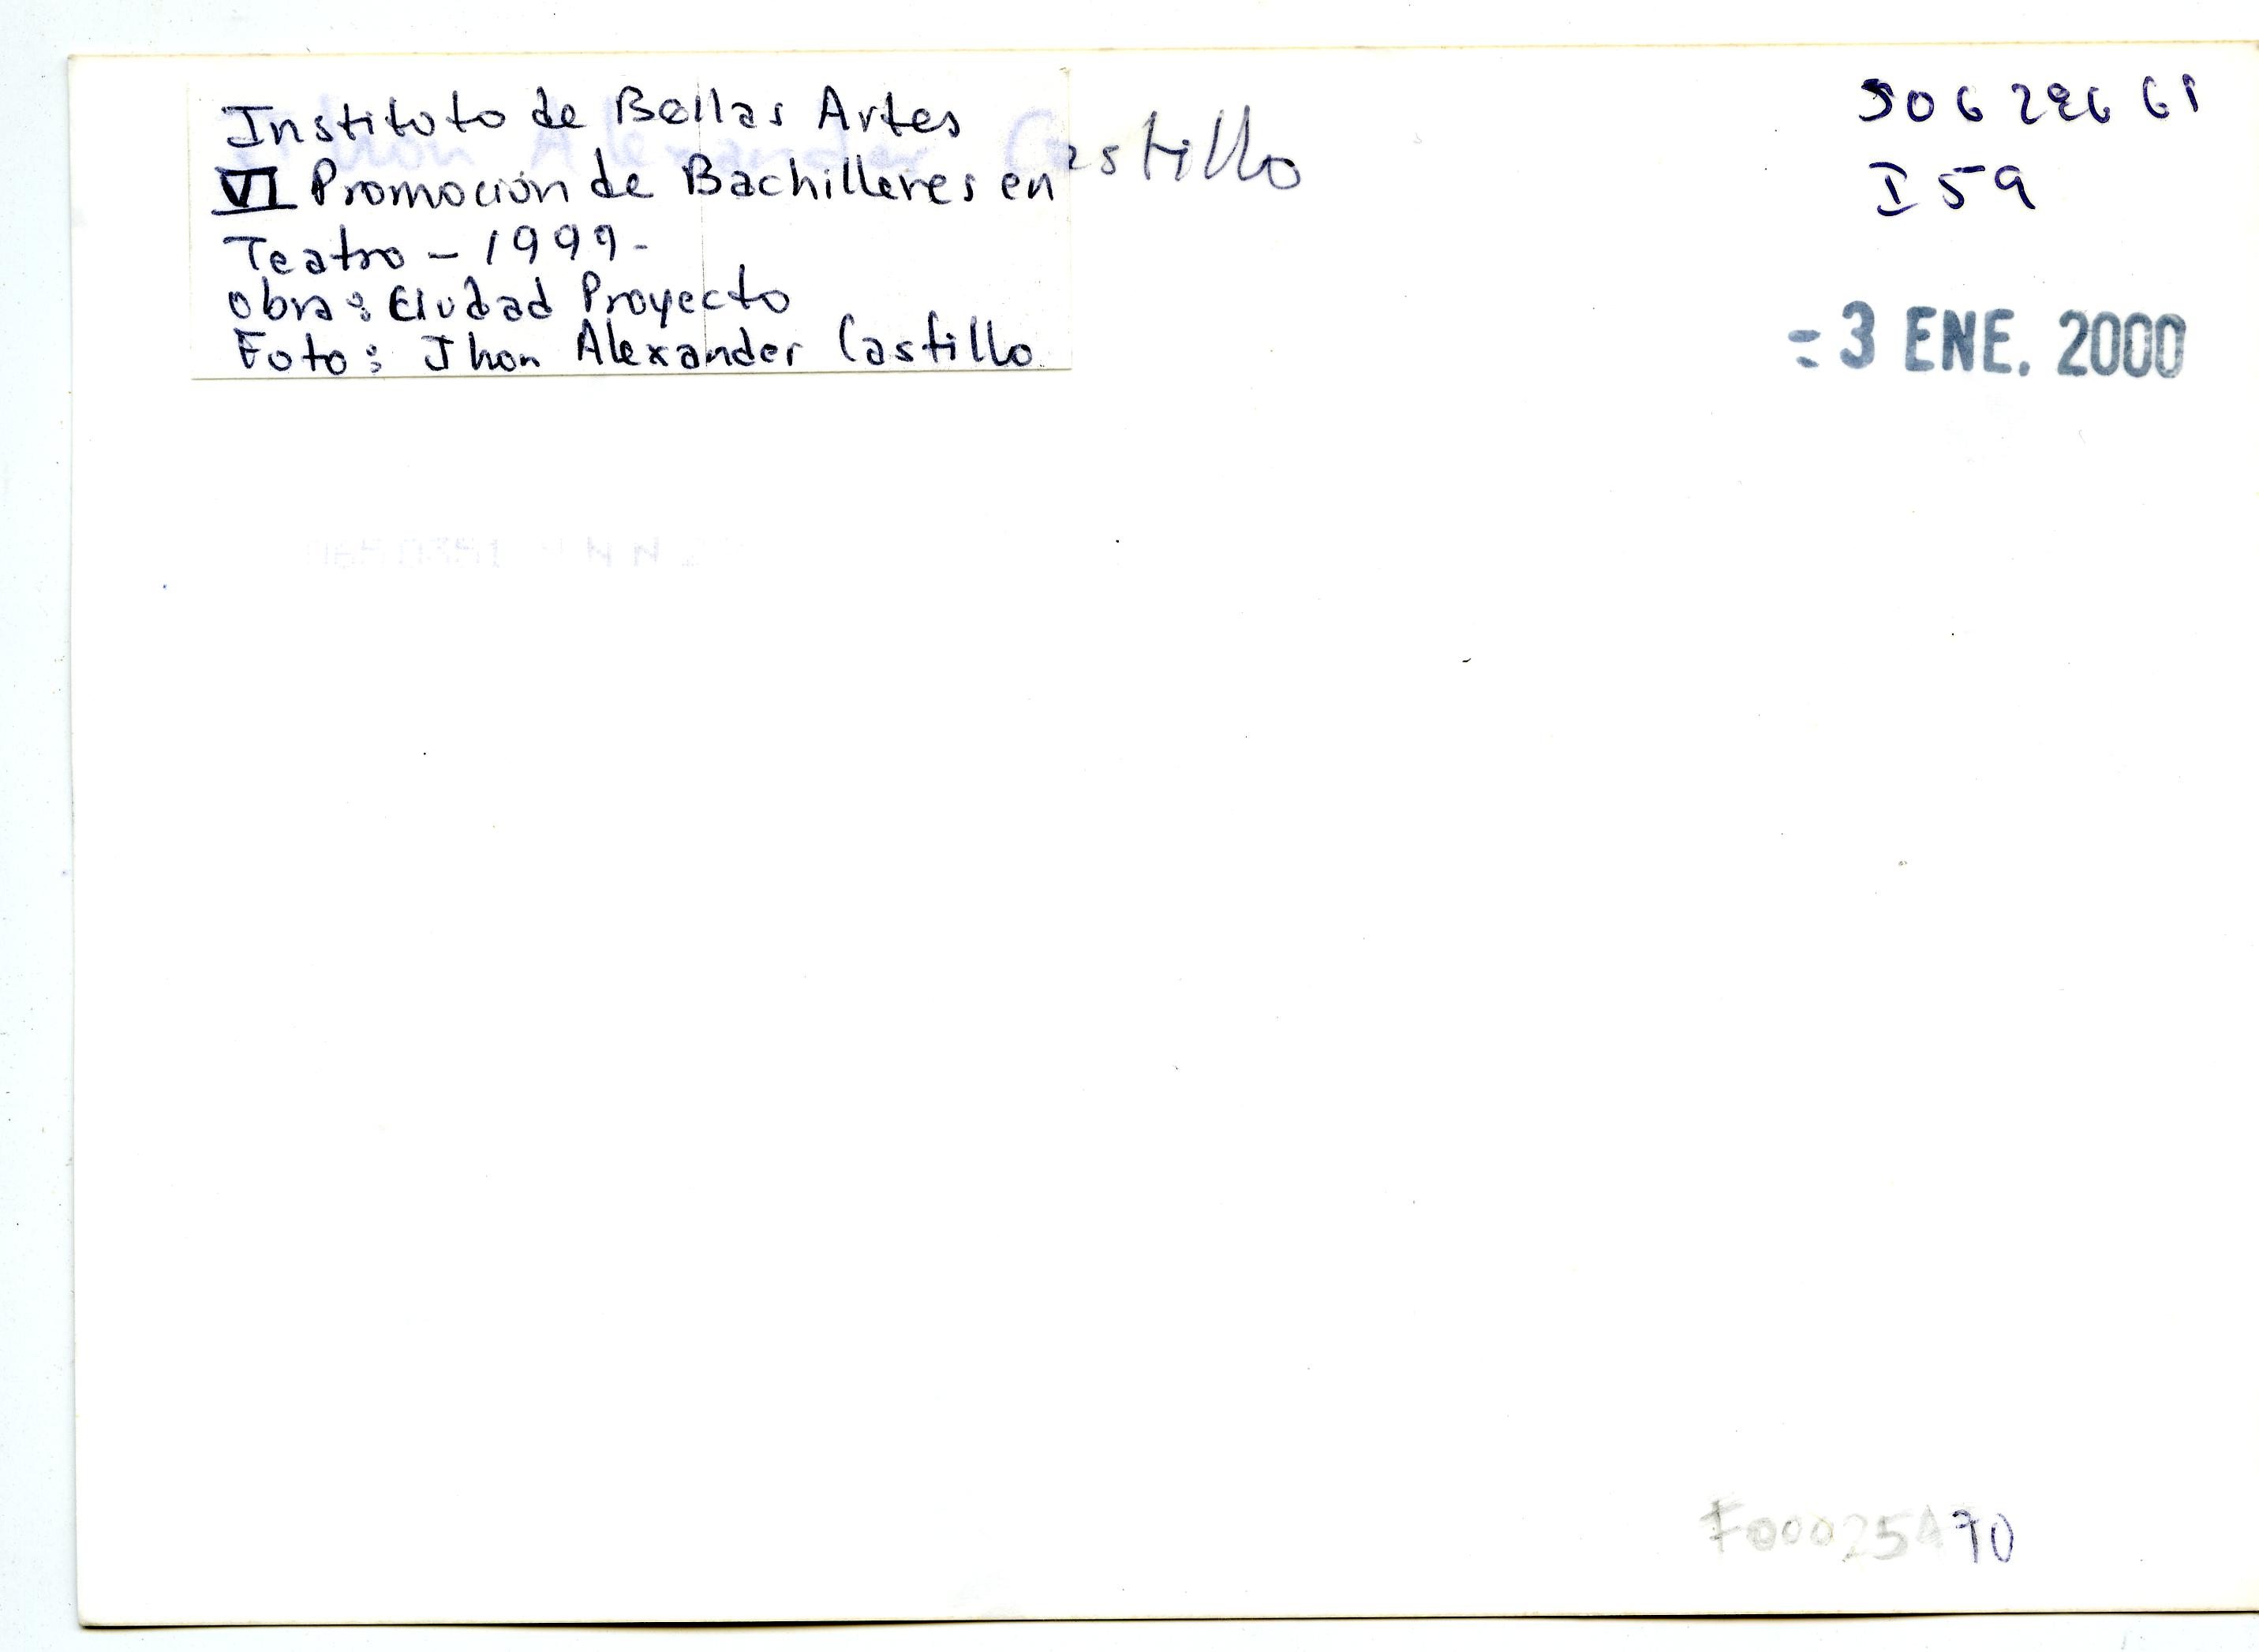 Instituto de Bellas Artes
VI Promoción de Bachilleres en
Teatro - 1999-
Obra: Ciudad Proyecto
Foto: Jhon Alexander Castillo
Jhon Alexander Castillo
I59
-3 ENE. 2000